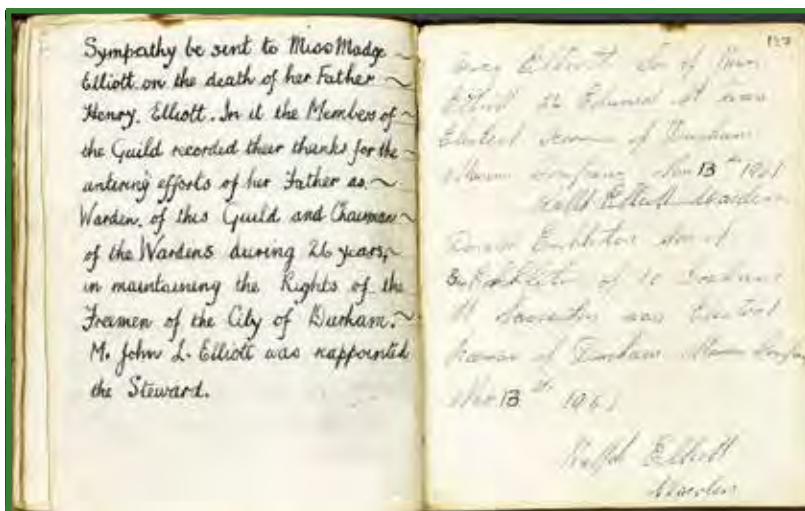 Sympathy be sent to Miss Madge ~
Elliott on the death of her Father
Henry. Elliott. In it the Members of ~
the Guild recorded their thanks for the
untering efforts of her Father as ~
Warden. of this Guild and Chairman ~
of the Wardens during 26 years, ~
in maintaining the Rights of the
Freemen of the City of Durham. ~
M. John L. Elliott was reappointed
the Steward.
137
Elliott Son of
Elliott 26 Edward St was
Elected Freeman of Durham
Mason Company Nov 13th 1961
Ralph Elliott Warden
Embleton Son of
Embleton of 10
St was Elected
Freeman of Durham Mason Company
Nov 13th 1961
Ralph Elliott
Warden